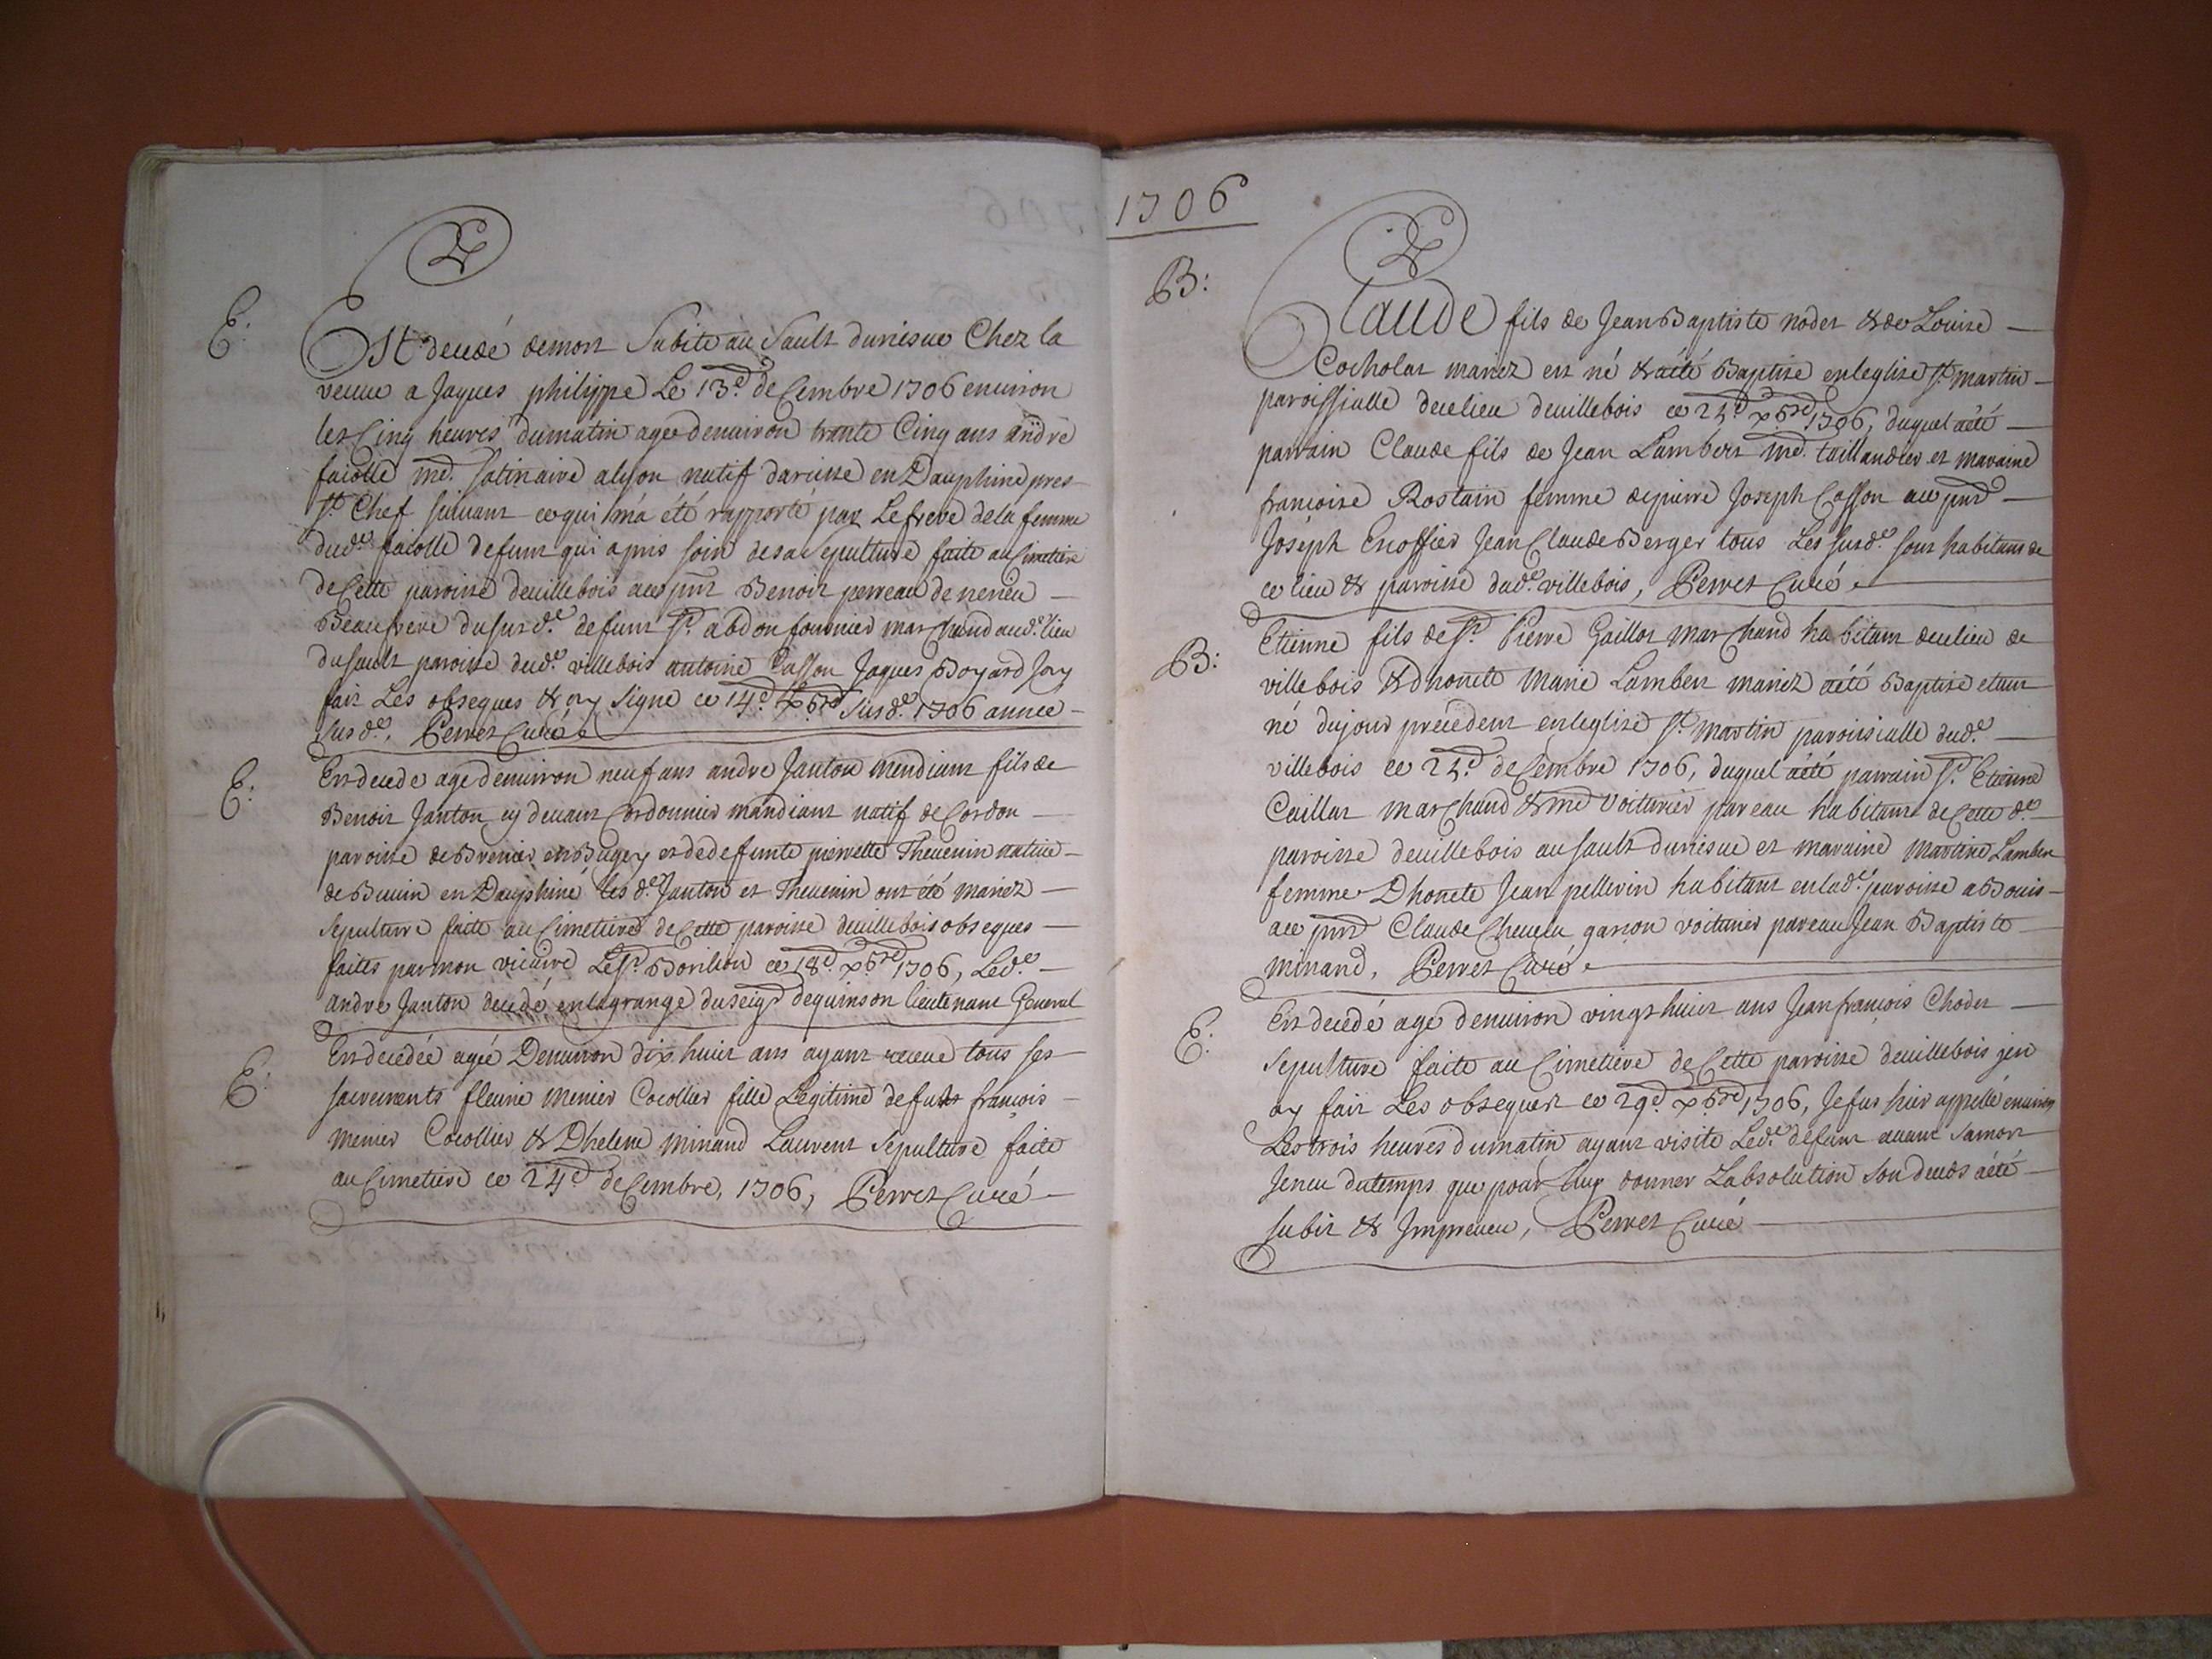 1706
E:
Est decedé demort Subite au Sault duriesue Chez la
veuue a Jaques philippe Le 13.e deCembre 1706 enuiron
les Cinq heures dumatin agee denuiron trante Cinq ans andre
faiolle md. satinaire alyon natif darcisse en Dauphine pres
st. Chef suiuant cequi m'a été rapporté par Le frere dela femme
dud.e faiolle defunt qui apris soin desa Sepulture faite auCimetiere
deCette paroisse deuillebois aces pnt Benoit perreau de
Beaufrere dususd.e defunt sr. abdon fournier marChand aud.e lieu
dusault paroisse dud.e villebois antoine Casson Jaques Boyard Jay
fait Les obseques & ay signe ce 14.e xbre susd.e 1706 annee
susd.e. Perret Curé
E:
Est decede age denuiron neuf ans andre Janton mendiant fils de
Benoit Janton cy deuant Cordonnier mandiant natif deCordon
paroisse deBrenier enBugey et dedefunte pierrette Theuenin natiue
de Buuin en Dauphiné les d.es Janton et Theuenin ont été mariez
Sepulture faite au Cimetiere deCette paroisse deuillebois obseques
faites parmon vicaire Lesr. Borilion ce 18.e xbre 1706, Led.e
andre Janton decedé enlagrange duseigr dequinson lieutenant General
E:
Est decedée agée Denuiron dix huit ans ayant receue tous ses
sacrements fleurie menier Cocollier fille Legitime defunt françois
menier Cocollier & Dhelene minand Laurent Sepulture faite
au Cimetiere ce 24.e deCembre, 1706, Perret Curé
B:
Claude fils de Jean Baptiste noder & de Louise
Cocholat mariez est né & aété Baptise enleglise st. martin
paroissialle decelieu deuillebois ce 24.e xbre 1706, duquel aété
parrain Claude fils de Jean Lambert md. taillandier et maraine
francoise Rostain femme depierre Joseph Casson ace pnt
Joseph Enoffier Jean Claude Berger tous Les susd.e sont habitans de
ce lieu & paroisse dud.e villebois, Perret Curé
B:
Etienne fils de sr. Pierre Gaillot marChand habitant deulieu de
villebois & dhonete marie Lambert mariez aété Baptise etant
né dujour précedent enleglise st. martin paroissialle dud.e
villebois ce 24.e deCembre 1706, duquel aété parrain sr. Etienne
Caillat marChand & md voiturier pareau habitant deCette d.e
paroisse deuillebois au sault duriesue et maraine martine Lambert
femme Dhonete Jean pellerin habitant enlad.e paroisse aBouis
ace pnt Claude Cheuelu garçon voiturier pareau Jean Baptiste
minand. Perret Curé
E:
Est decedé agé denuiron vingt huit ans Jean françois Choder
Sepulture faite au Cimetiere deCette paroisse deuillebois jen
ay fait Les obseques ce 29.e xbre 1706, Jefus hier appellé enuiron
Les trois heures dumatin ayant visite Led.e defunt auant samort
Jeneu dutemps que pour luy donner Labsolution Son deces aété
subit & Impreueu, Perret Curé